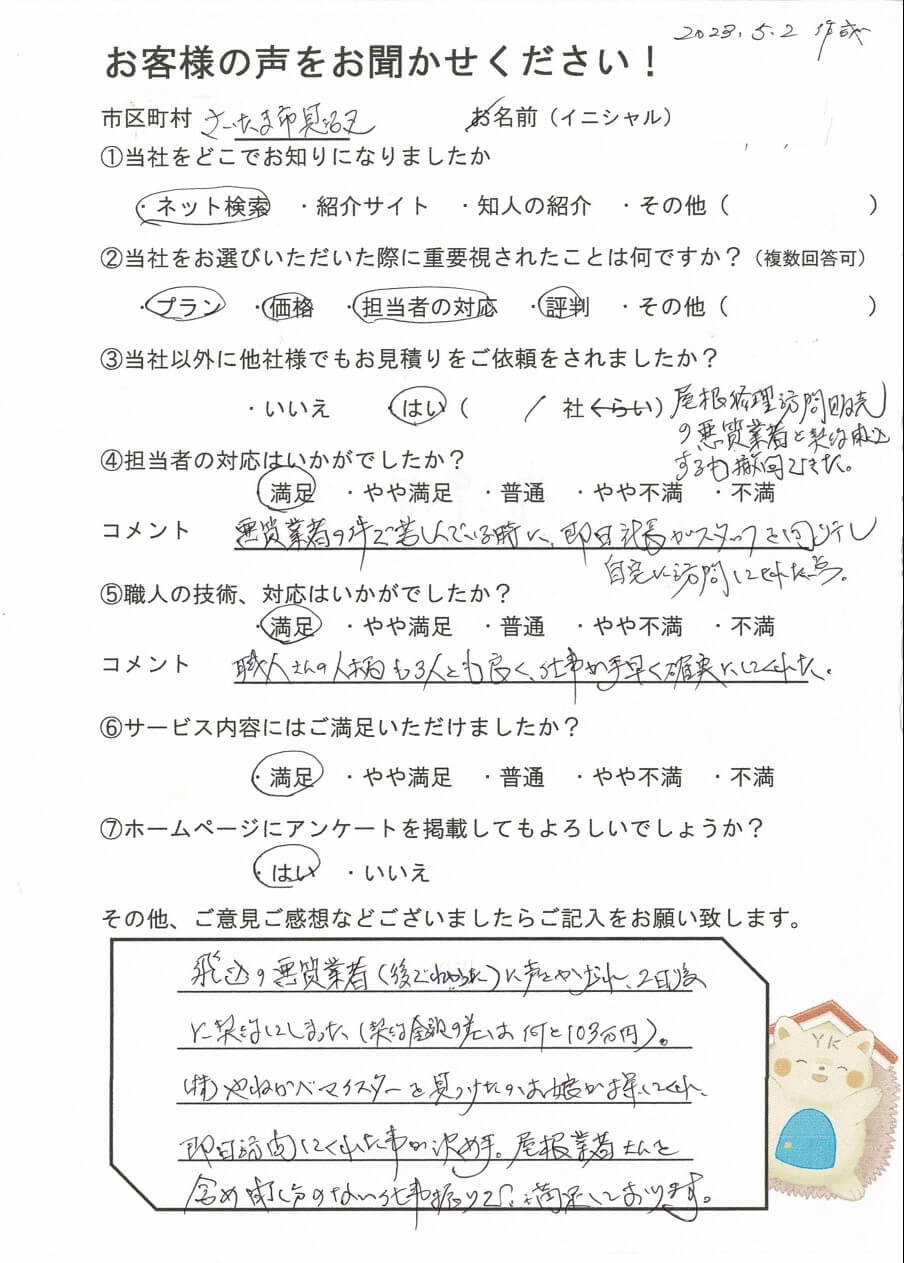 2023.5.2 作成
お客様の声をお聞かせください！
市区町村 さいたま市見沼区 お名前（イニシャル）
①当社をどこでお知りになりましたか
・ネット検索 ・紹介サイト ・知人の紹介 ・その他（ ）
②当社をお選びいただいた際に重要視されたことは何ですか？（複数回答可）
・プラン ・価格 ・担当者の対応 ・評判 ・その他（ ）
③当社以外に他社様でもお見積りをご依頼をされましたか？
・いいえ ・はい（ 1 社くらい）
屋根修理訪問販売
の悪質業者と契約申込
するも撤回できた。
④担当者の対応はいかがでしたか？
・満足 ・やや満足 ・普通 ・やや不満 ・不満
コメント 悪質業者の件で苦しんでいる時に、即日社長がスタッフを同行し
自宅に訪問してくれた点。
⑤職人の技術、対応はいかがでしたか？
・満足 ・やや満足 ・普通 ・やや不満 ・不満
コメント 職人さんの人柄も3人とも良く、仕事が手早く確実にしてくれた。
⑥サービス内容にはご満足いただけましたか？
・満足 ・やや満足 ・普通 ・やや不満 ・不満
⑦ホームページにアンケートを掲載してもよろしいでしょうか？
・はい ・いいえ
その他、ご意見ご感想などございましたらご記入をお願い致します。
飛込の悪質業者（後でわかった）に声をかけられ、2日後
に契約してしまった（契約金額の差は何と103万円）。
(株)やねかべマイスターを見つけたのは娘が探してくれ、
即日訪問してくれた事が決め手。屋根業者さんを
含め申し分のない仕事振りで満足しております。
YK